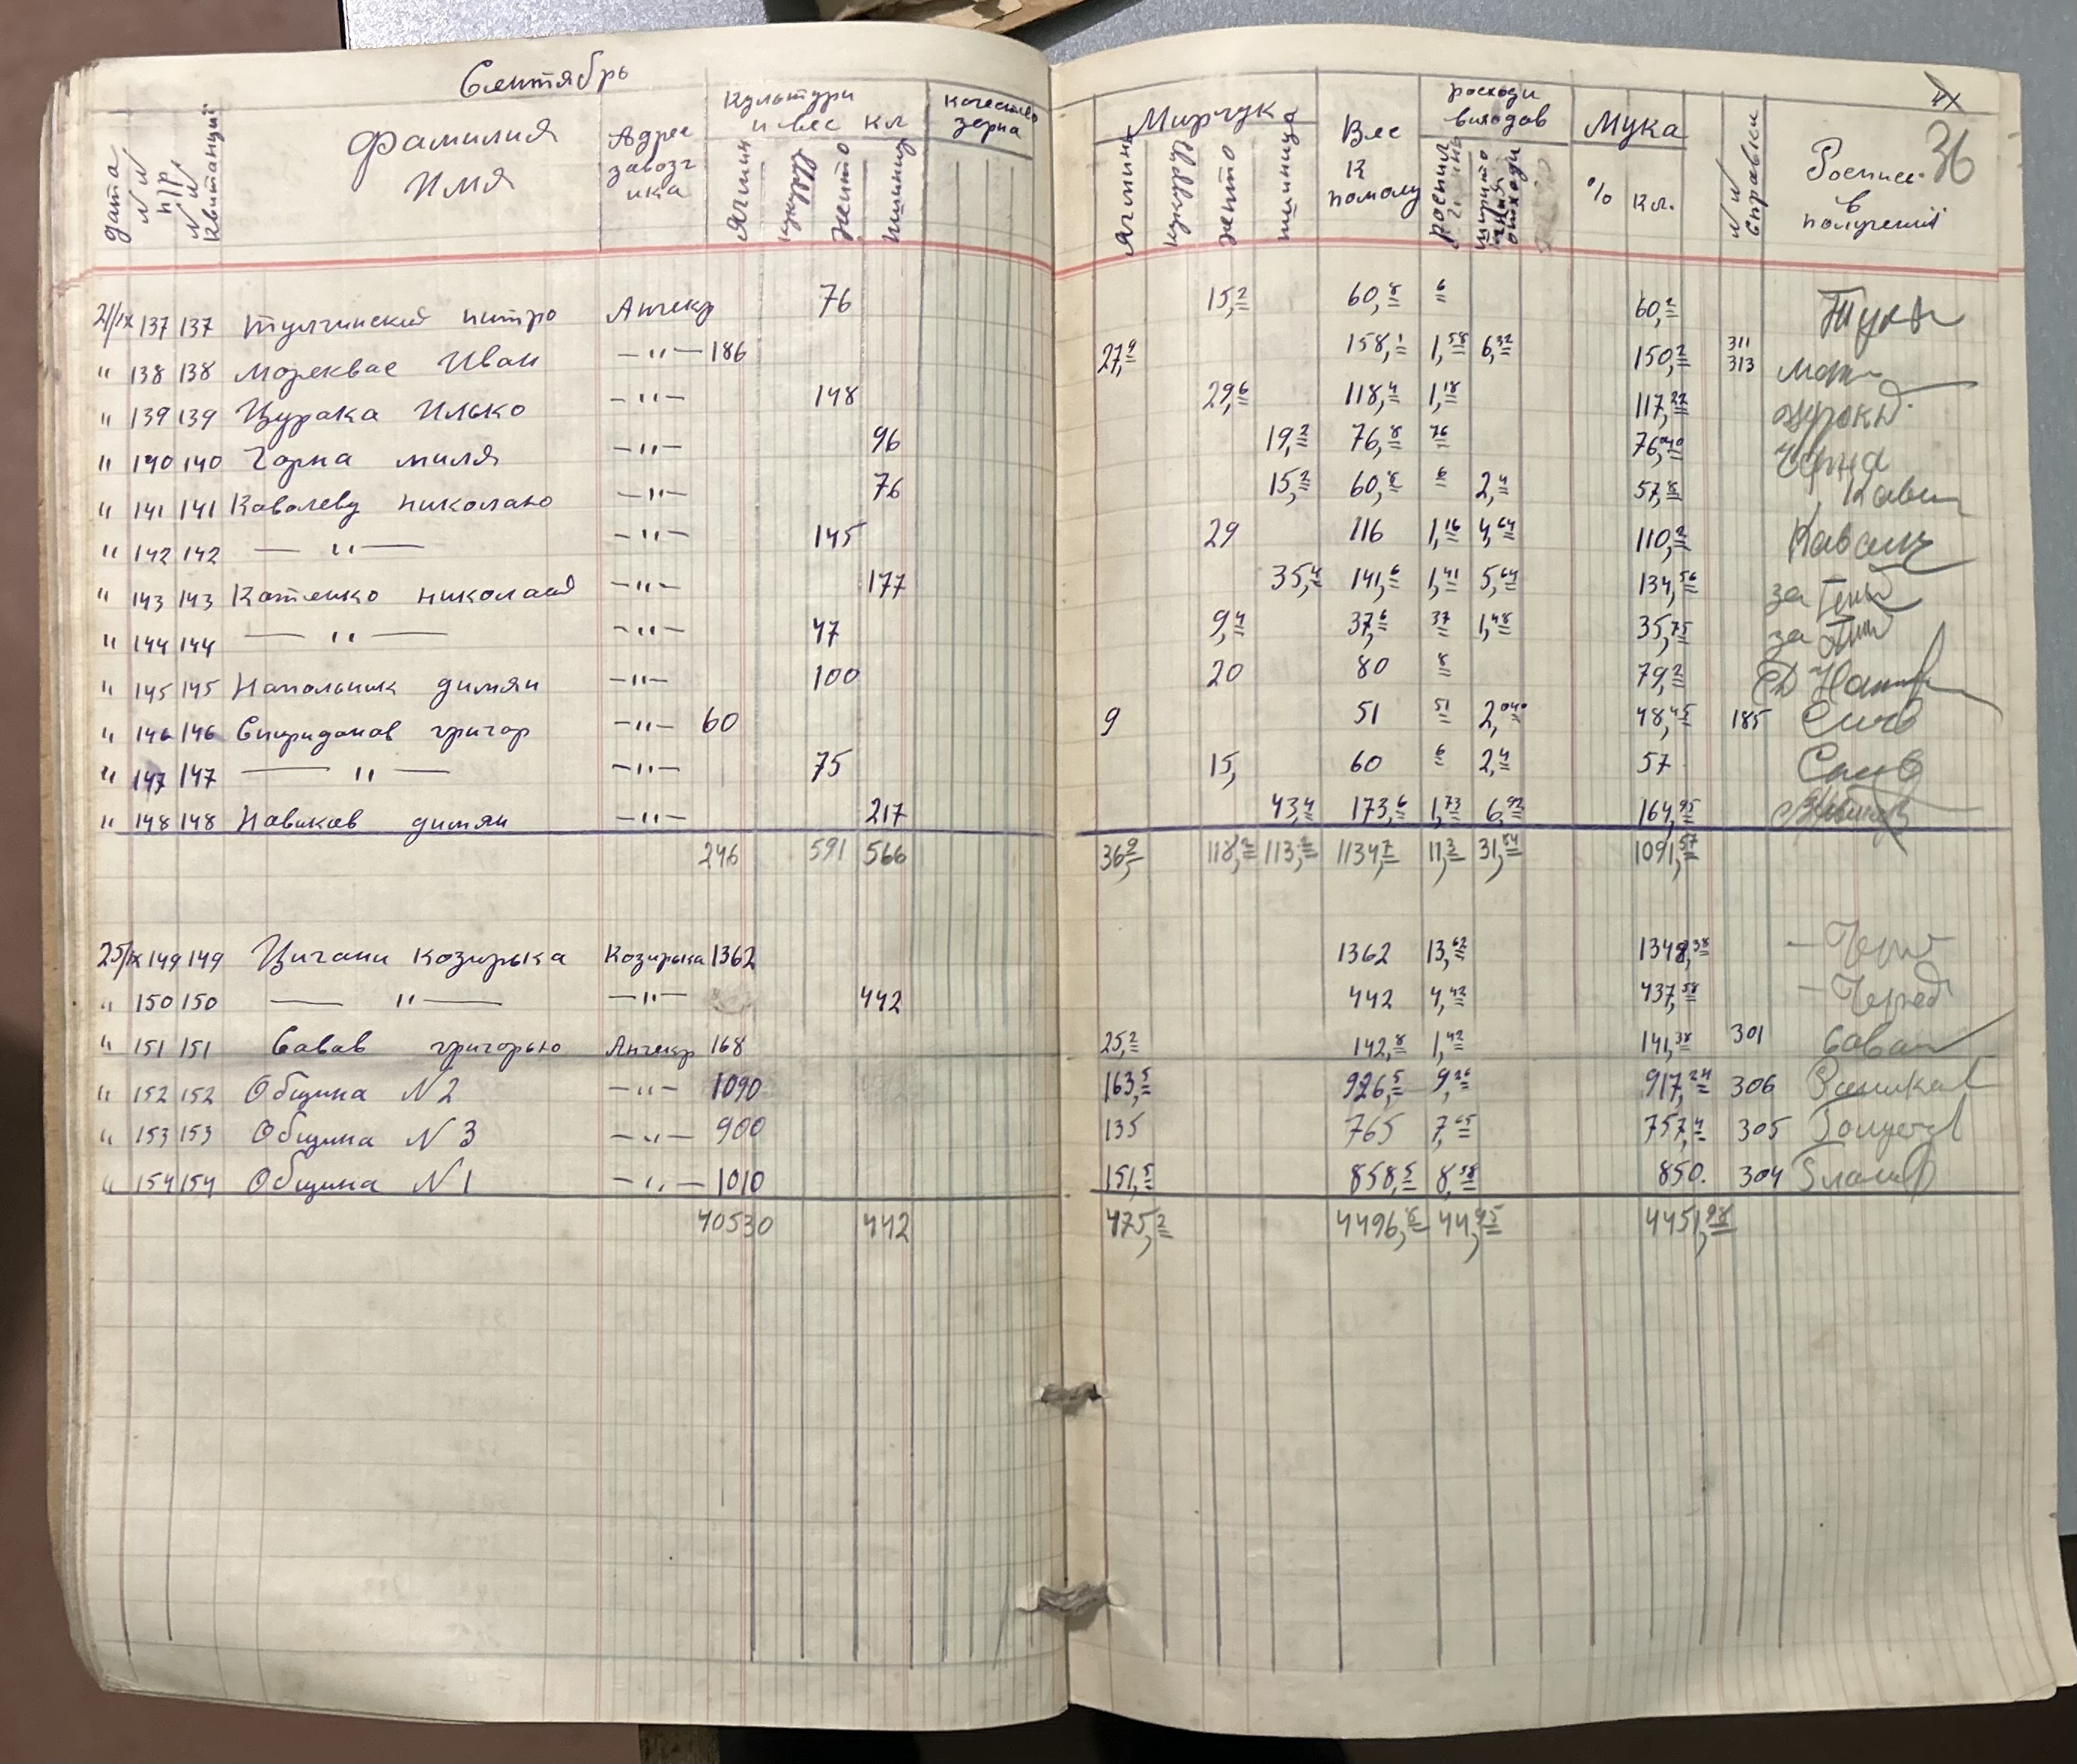 Сентябрь
дата
NN п/р
NN Квитанций
Фамилия Имя
Адрес завозчика
Культури и вес кл
Ячмин
кукуруз
жито
пшиница
качество зерна
Мирчук
Ячмин
кукуруз
жито
пшиница
Вес к помолу
росходи виходов
роспил
Мука
% кл.
NN справки
Роспис в получении
36
21/IX 137 137 Тулчинский питро Анчекр 76 15,2 60,8 6 60,2
" 138 138 Мореквас Иван —"— 186 27,9 158,1 1,58 6,32 150,2 311 313
" 139 139 Цурака Илько —"— 148 29,6 118,4 1,18 117,22
" 140 140 Чорна миля —"— 96 19,2 76,8 76 76,040 Чорна
" 141 141 Ковалеву николаю —"— 76 15,2 60,8 6 2,4 57,8
" 142 142 —"— —"— 145 29 116 1,16 4,64 110,2
" 143 143 Котенко николай —"— 177 35,4 141,6 1,41 5,64 134,56 за
" 144 144 —"— —"— 47 9,4 37,6 37 1,48 35,75 за
" 145 145 Напольник димян —"— 100 20 80 8 79,2
" 146 146 Спиридонов григор —"— 60 9 51 51 2,040 48,45 185
" 147 147 —"— —"— 75 15, 60 6 2,4 57
" 148 148 Новиков димян —"— 217 43,4 173,6 1,73 6,92 164,95
246 591 566 36,9 118,2 113,2 1134,7 11,3 31,54 1091,57
25/IX 149 149 Цигани козирька Козирька 1362 1362 13,62 1348,38
" 150 150 —"— —"— 442 442 4,42 437,58
" 151 151 Савав григорью Анчекр 168 25,2 142,8 1,42 141,38 301
" 152 152 Община N 2 —"— 1090 163,5 926,5 9,26 917,24 306
" 153 153 Община N 3 —"— 900 135 765 7,65 757,4 305
" 154 154 Община N 1 —"— 1010 151,5 858,5 8,58 850. 304
40530 442 475,2 4496,8 44,95 4451,98